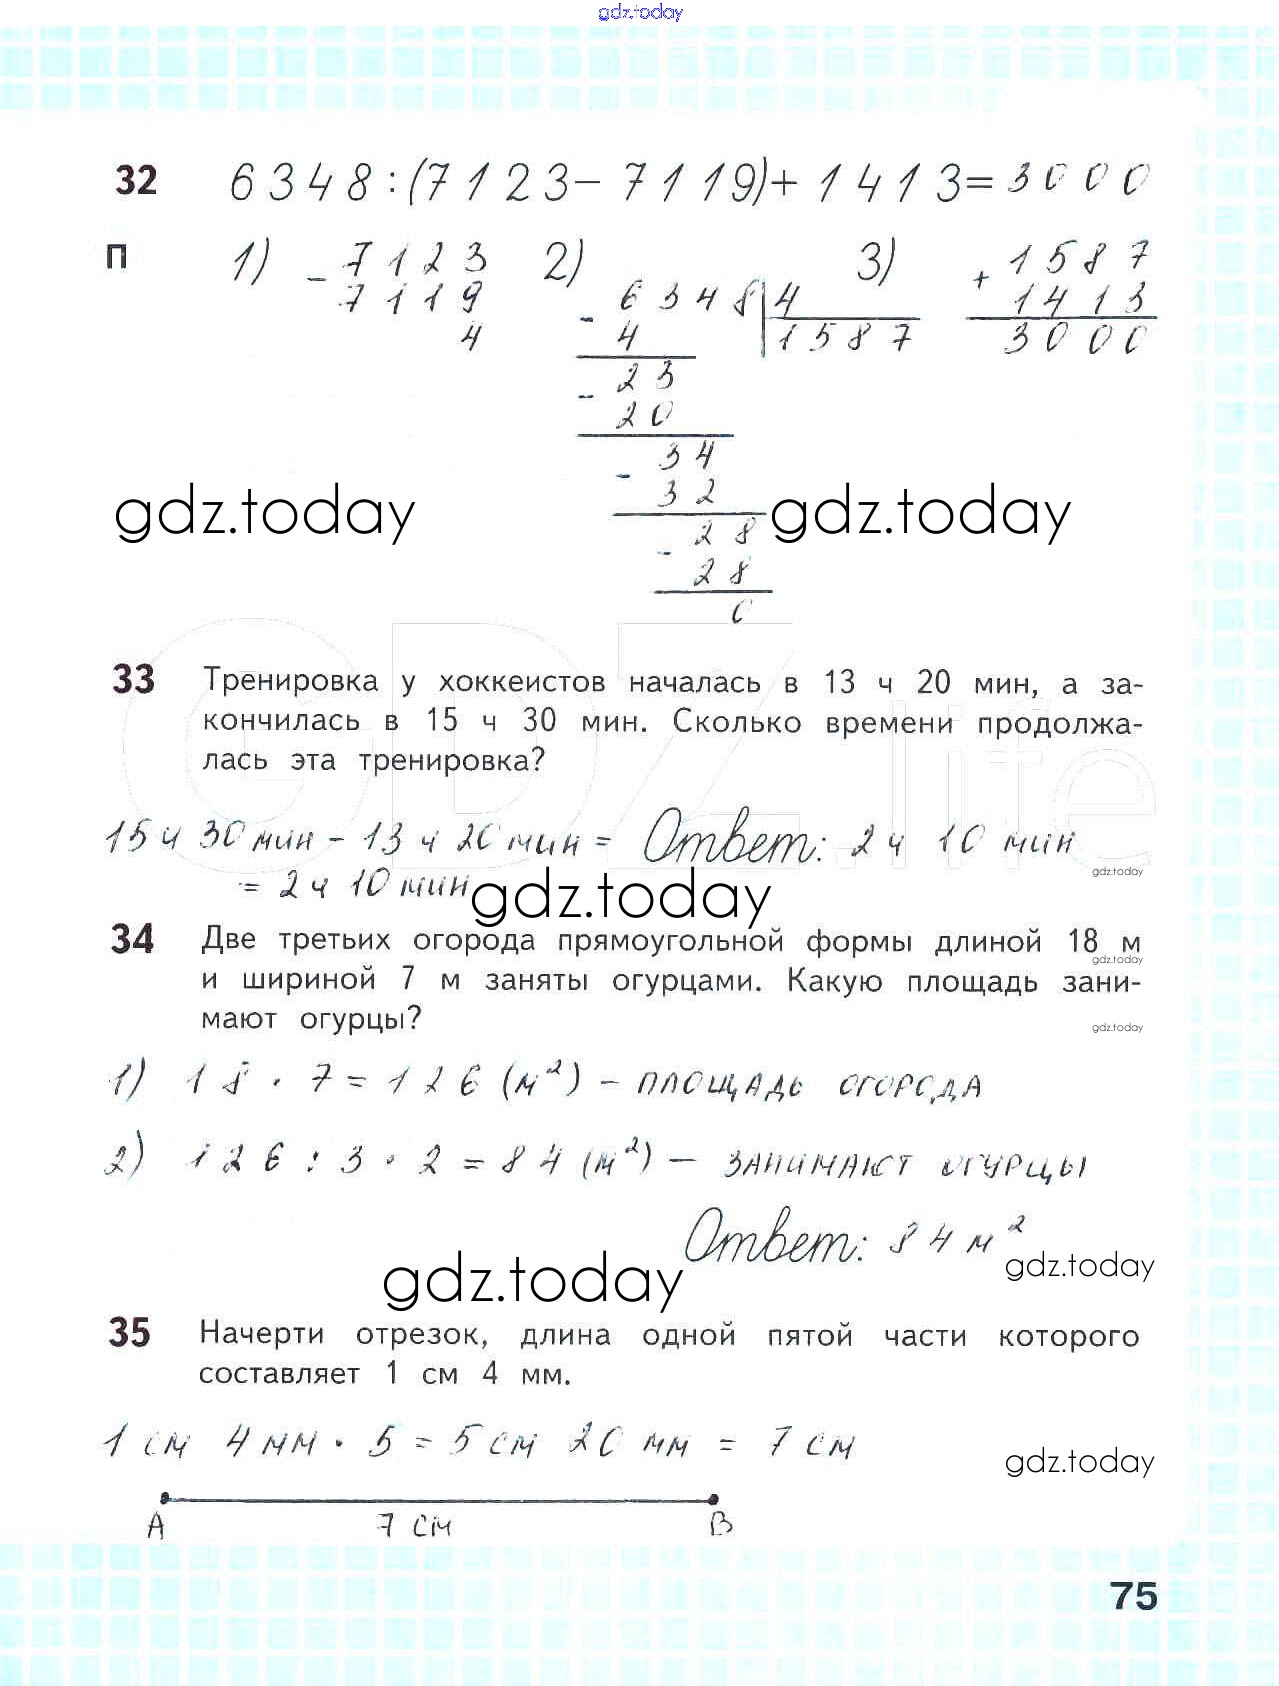 gdz.today
32 6348:(7123-7119)+1413=3000
П 1) - 7123 2) 3) + 1587
7119 - 6348 4 1413
4 4 1587 3000
23
- 20
34
- 32
gdz.today gdz.today
28
- 28
0
33 Тренировка у хоккеистов началась в 13 ч 20 мин, а за-
кончилась в 15 ч 30 мин. Сколько времени продолжа-
лась эта тренировка?
GDZ.life
15 ч 30 мин - 13 ч 20 мин = Ответ: 2 ч 10 мин
gdz.today
= 2 ч 10 мин
gdz.today
34 Две третьих огорода прямоугольной формы длиной 18 м
gdz.today
и шириной 7 м заняты огурцами. Какую площадь зани-
мают огурцы?
gdz.today
1) 18 · 7 = 126 (м²) - площадь огорода
2) 126 : 3 · 2 = 84 (м²) - занимают огурцы
Ответ: 84 м²
gdz.today gdz.today
35 Начерти отрезок, длина одной пятой части которого
составляет 1 см 4 мм.
1 см 4 мм · 5 = 5 см 20 мм = 7 см
gdz.today
А 7 см В
75